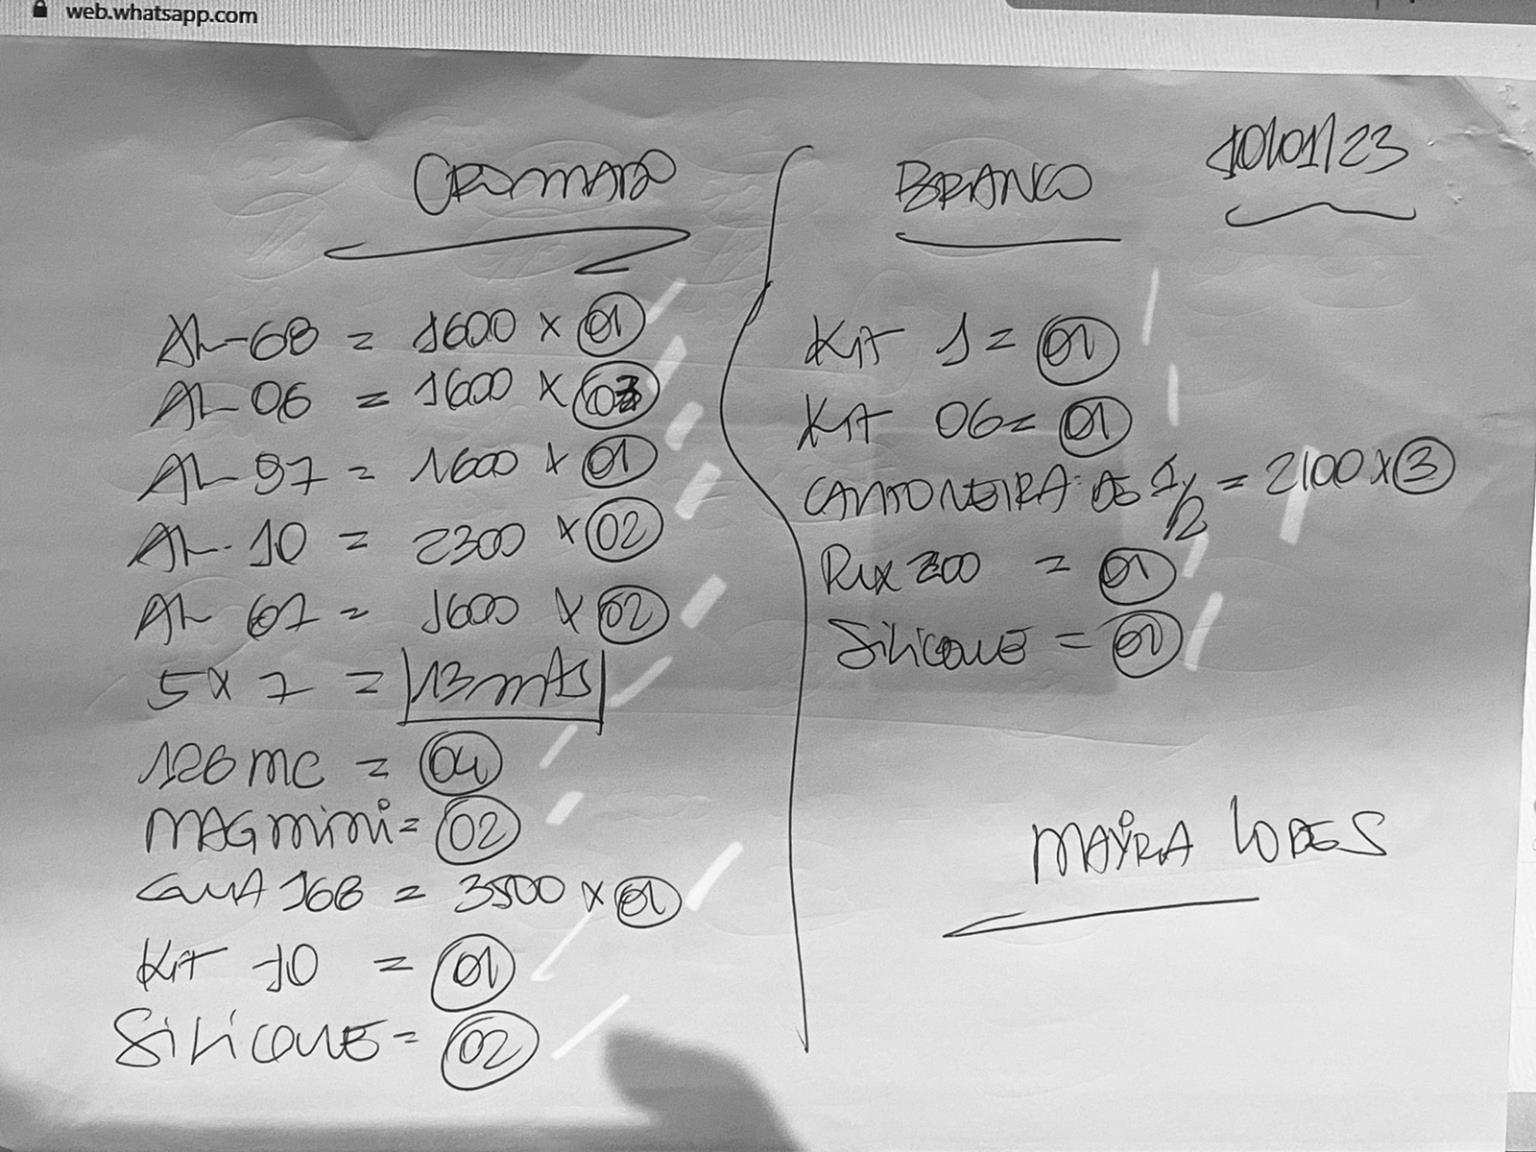 web.whatsapp.com
CROMADO
AL-68 = 1600 x 01
AL-06 = 1600 x 03
AL-97 = 1600 x 01
AL-10 = 2300 x 02
AL 67 = 1600 x 02
5x7 = 13 mts
126 mc = 04
MAG mini = 02
CAUA 168 = 3500 x 01
Kit 10 = 01
Silicone = 02
BRANCO
10/01/23
Kit 1 = 01
Kit 06 = 01
CANTONEIRA DE 1/2 = 2100 x 3
= 01
Silicone = 01
MAYRA LOPES